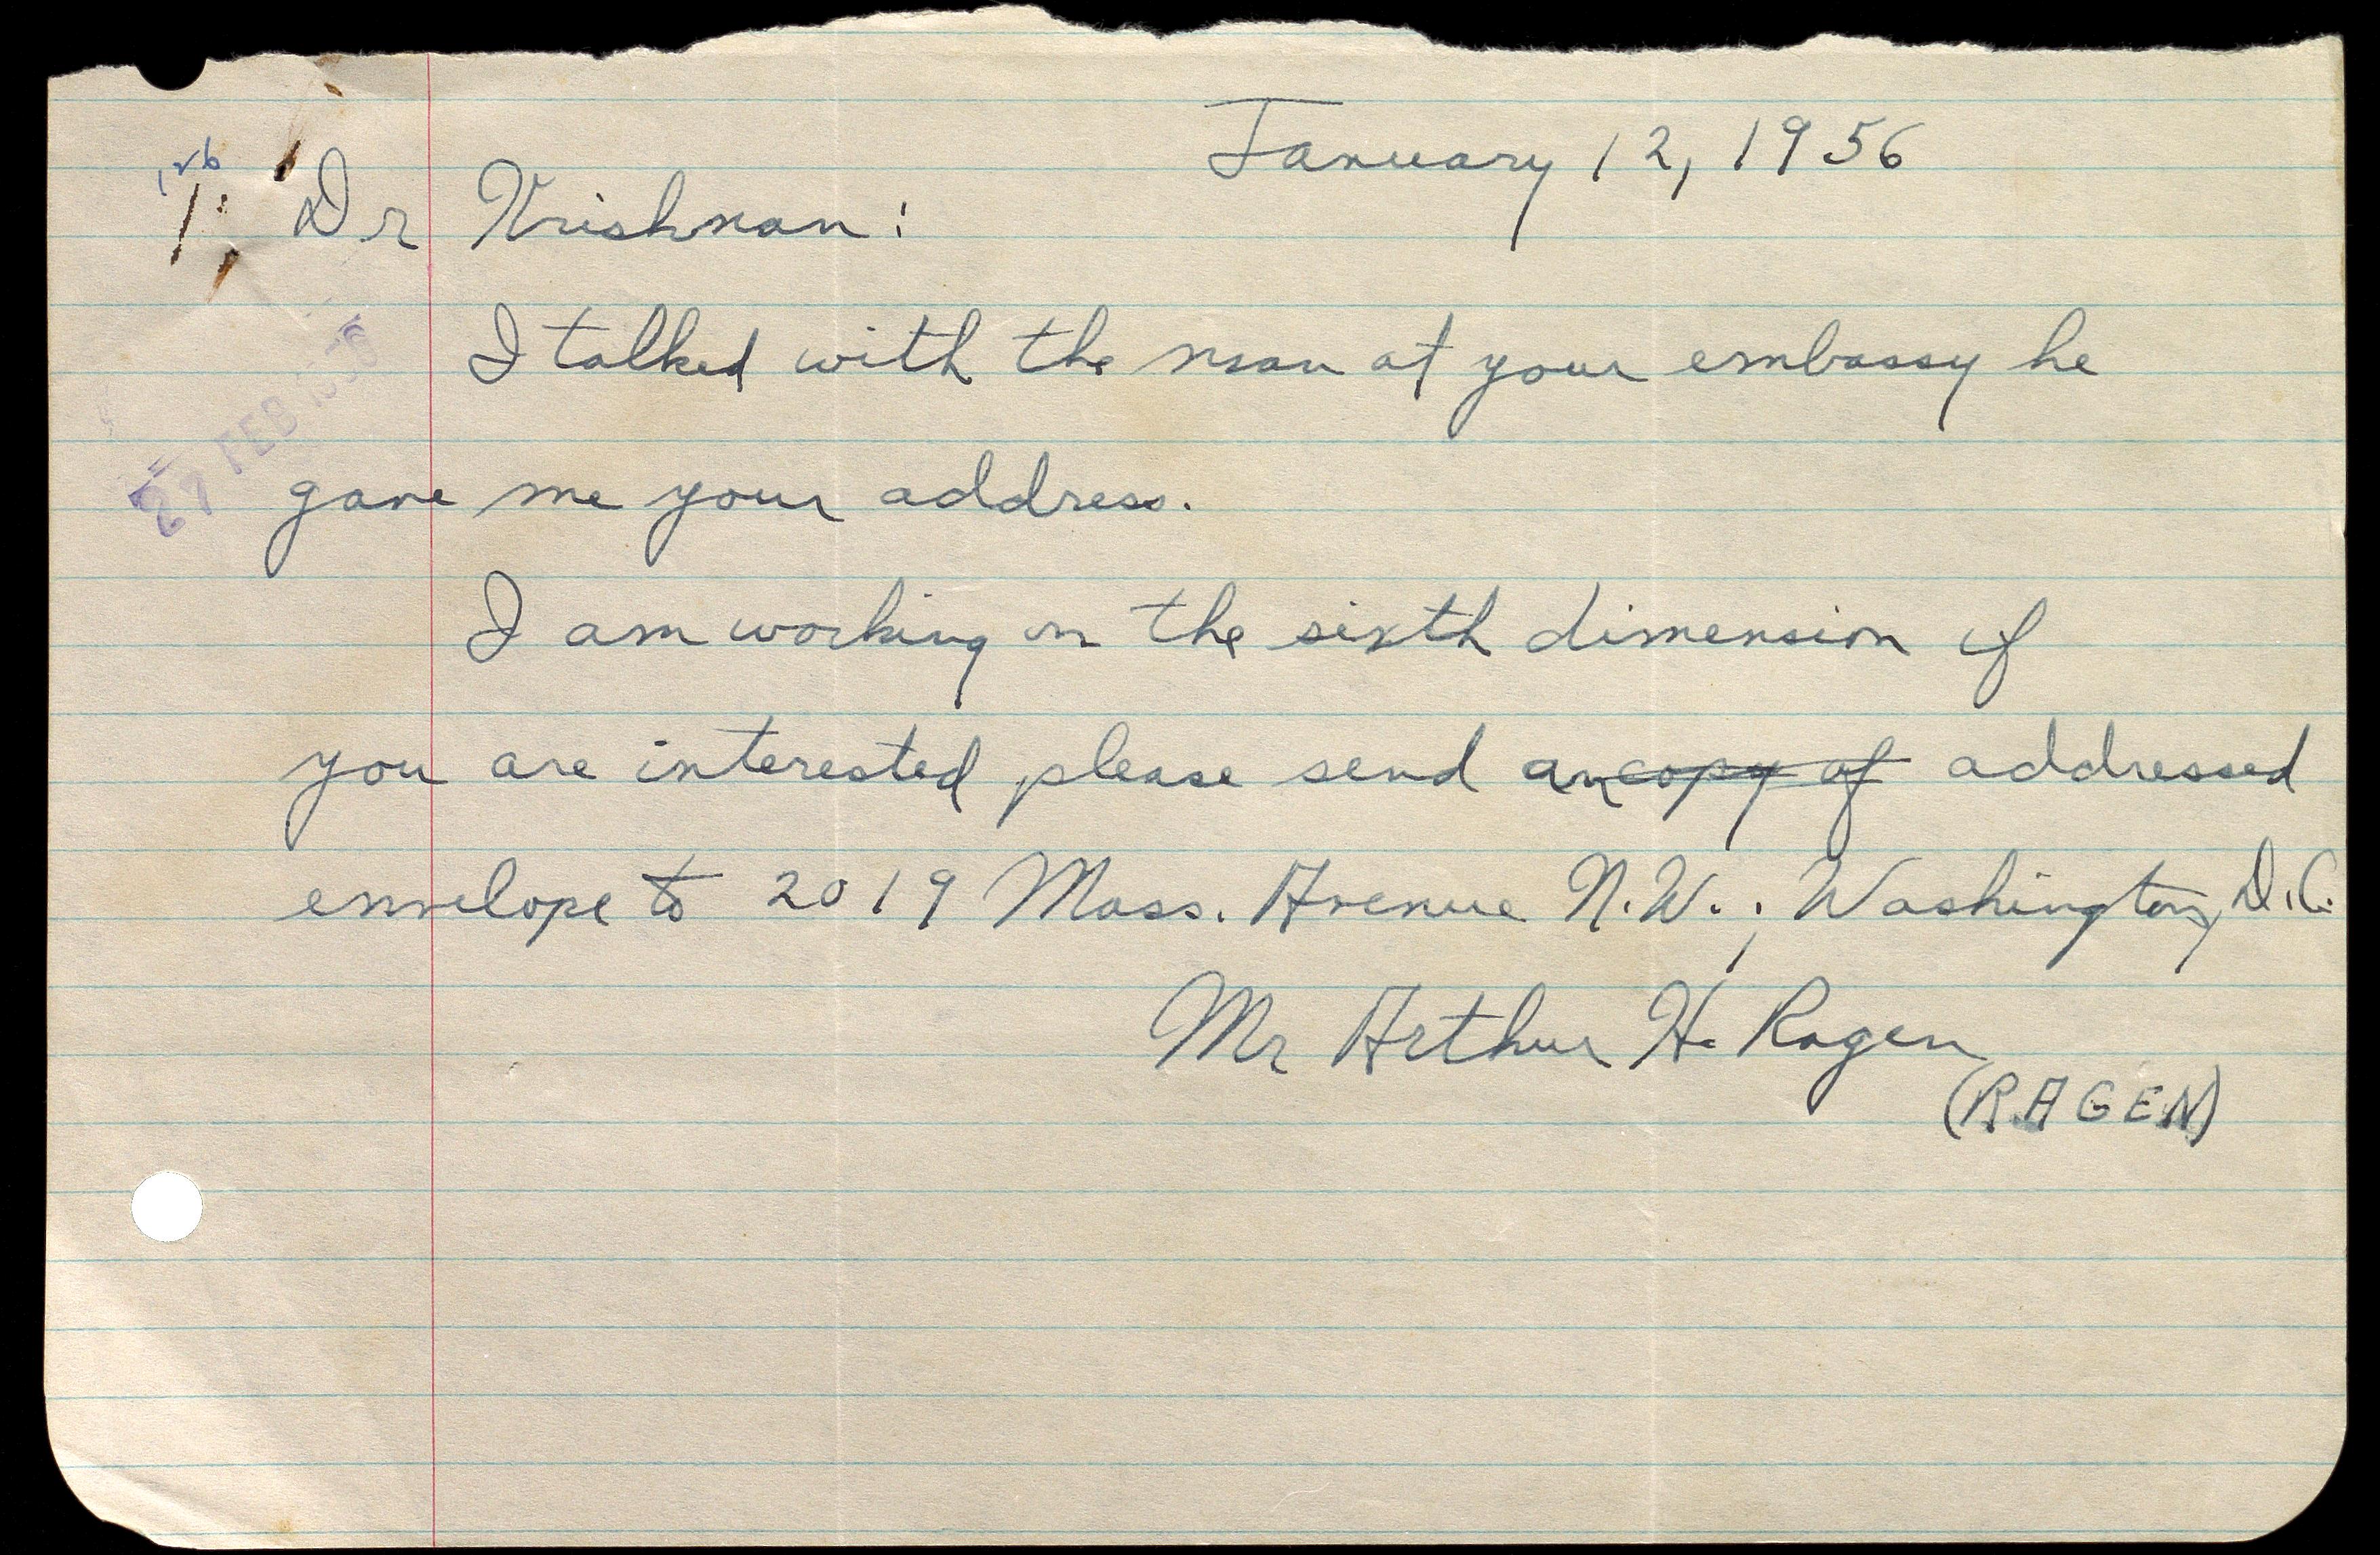 January 12, 1956
126
Dr Krishnan:
I talked with the man at your embassy he
gave me your address.
27 FEB 1956
I am working on the sixth dimension if
you are interested please send an copy of addressed
envelope to 2019 Mass. Avenue N.W., Washington, D.C.
Mr Arthur H. Ragen
(RAGEN)